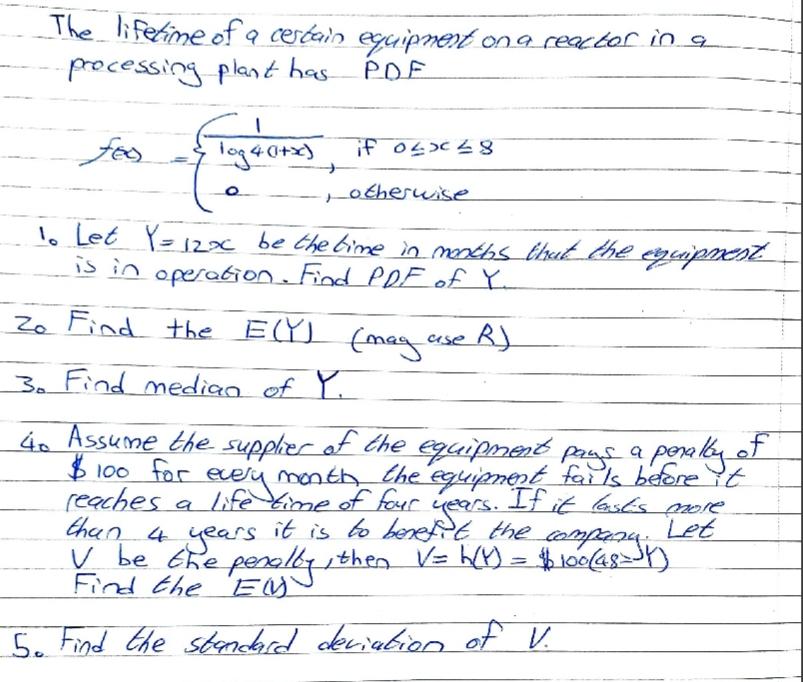 The lifetime of a certain equipment on a reactor in a
processing plant has PDF
f(x) = { 1 / log4(1+x) , if 0≤x≤8
0 , otherwise
1. Let Y=12x be the time in months that the equipment
is in operation. Find PDF of Y.
2. Find the E(Y) (may use R)
3. Find median of Y.
4. Assume the supplier of the equipment pays a penalty of
$100 for every month the equipment fails before it
reaches a life time of four years. If it lasts more
than 4 years it is to benefit the company. Let
V be the penalty, then V= h(Y) = $100(48-Y)
Find the E(V)
5. Find the standard deviation of V.